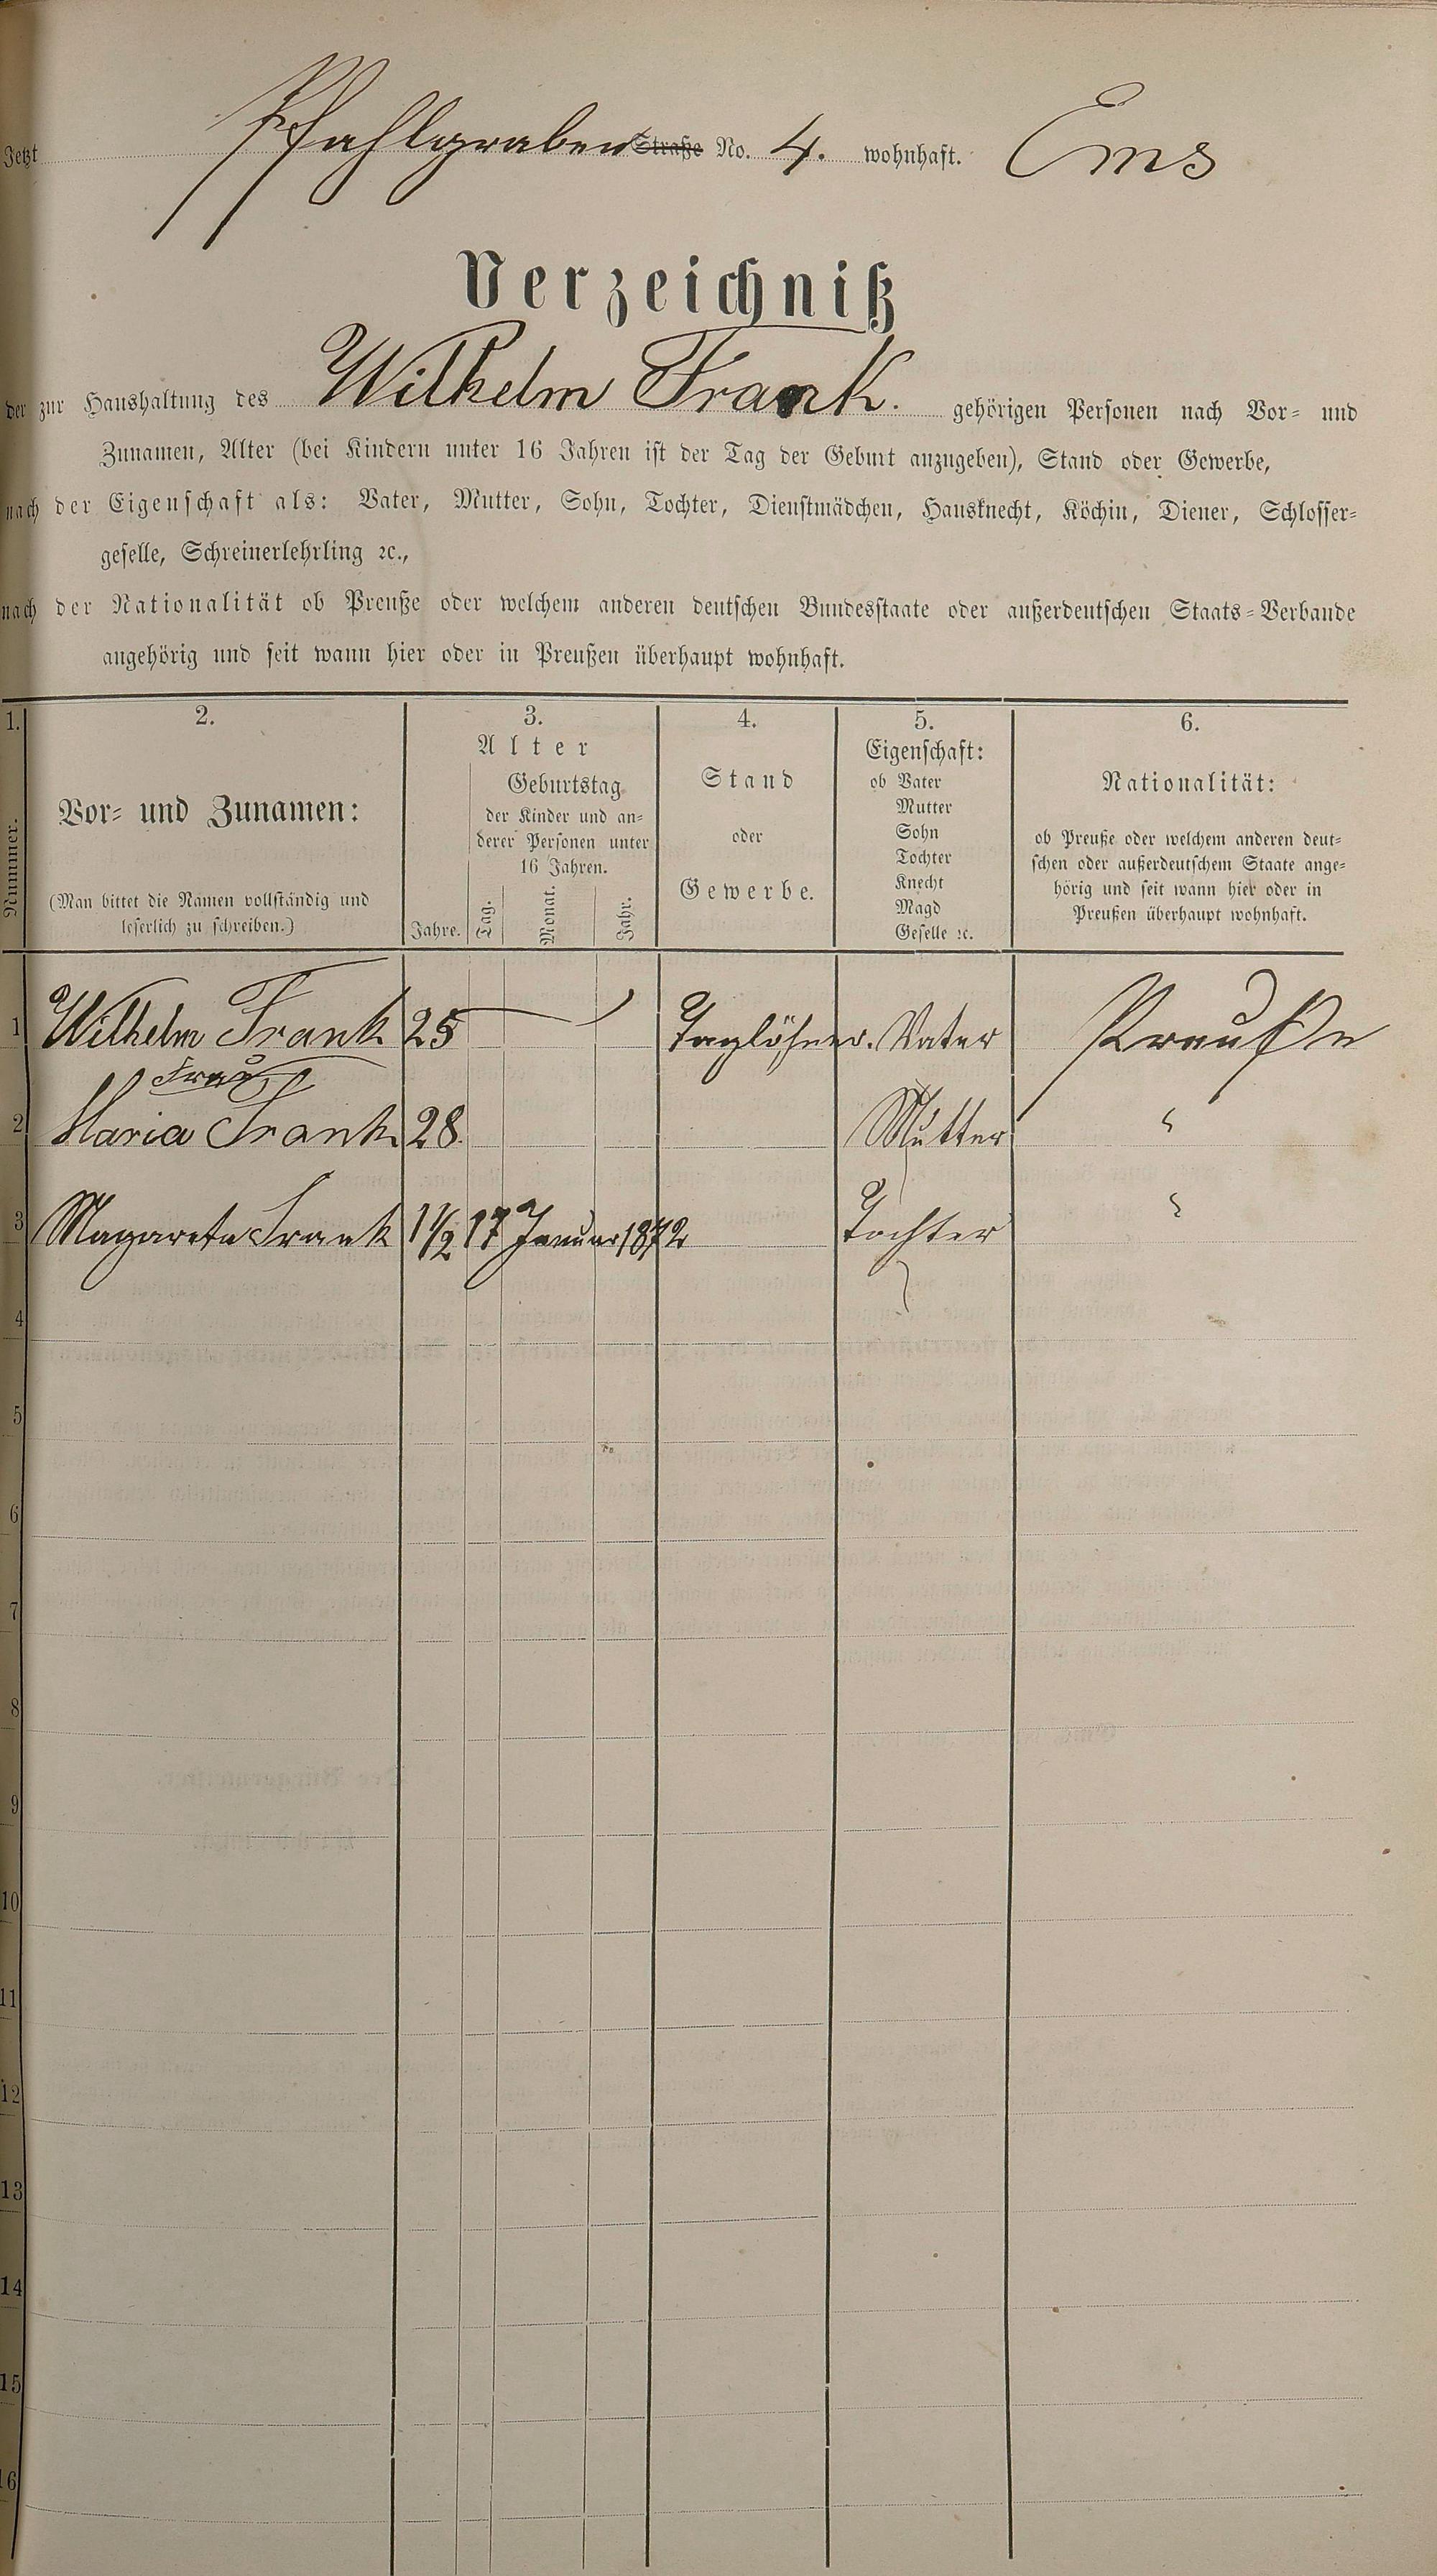 Jetzt Pfahlgraben Straße No. 4. wohnhaft. Ems
Verzeichniß
der zur Haushaltung des Wilhelm Frank. gehörigen Personen nach Vor- und
Zunamen, Alter (bei Kindern unter 16 Jahren ist der Tag der Geburt anzugeben), Stand oder Gewerbe,
nach der Eigenschaft als: Vater, Mutter, Sohn, Tochter, Dienstmädchen, Hausknecht, Köchin, Diener, Schlosser-
geselle, Schreinerlehrling ꝛc.,
nach der Nationalität ob Preuße oder welchem anderen deutschen Bundesstaate oder außerdeutschen Staats-Verbande
angehörig und seit wann hier oder in Preußen überhaupt wohnhaft.
1.
Nummer.
2.
Vor- und Zunamen:
(Man bittet die Namen vollständig und
leserlich zu schreiben.)
3.
Alter
Jahre.
Geburtstag
der Kinder und an-
derer Personen unter
16 Jahren.
Tag.
Monat.
Jahr.
4.
Stand
oder
Gewerbe.
5.
Eigenschaft:
ob Vater
Mutter
Sohn
Tochter
Knecht
Magd
Geselle ꝛc.
6.
Nationalität:
ob Preuße oder welchem anderen deut-
schen oder außerdeutschem Staate ange-
hörig und seit wann hier oder in
Preußen überhaupt wohnhaft.
1 Wilhelm Frank 25 Taglöhner. Vater Preuße
Frau
2 Maria Frank 28 Mutter "
3 Magareta Frank 1½ 17 Januar 1872 Tochter "
4
5
6
7
8
9
10
11
12
13
14
15
16